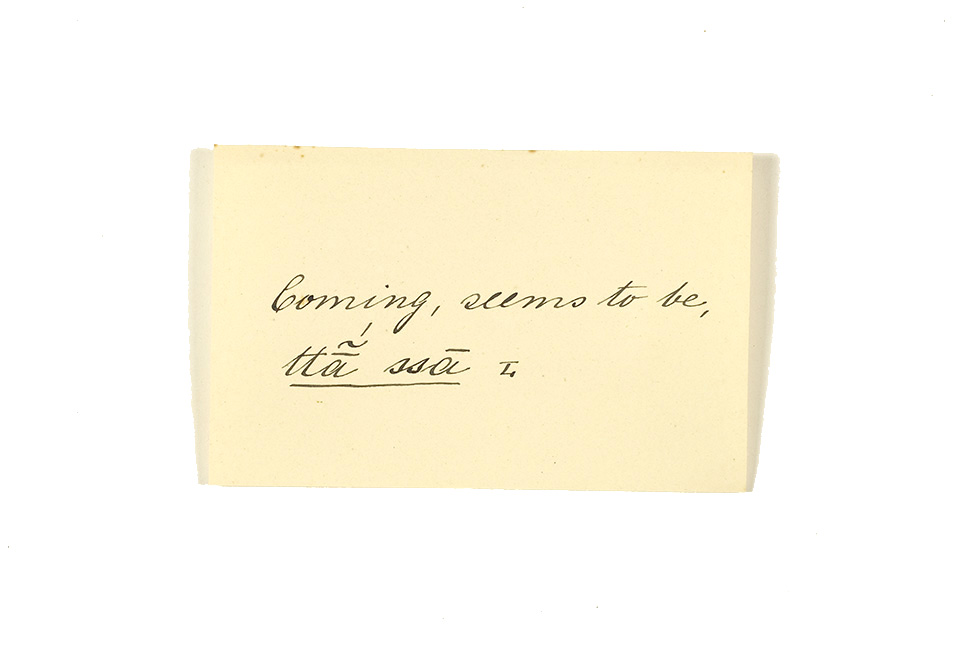 Coming, seems to be,
ttā̰́ ssā L